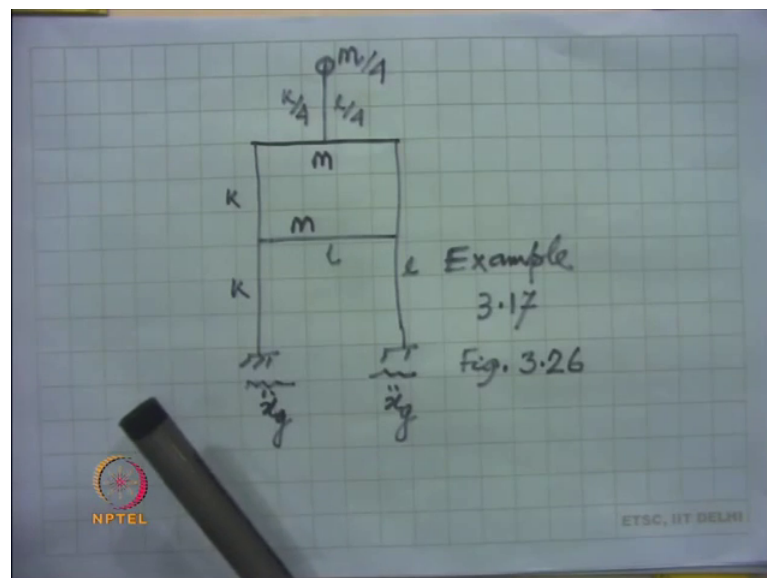 m/4
k/4 l/4
m
k
m
l
k
l
Example
3.17
Fig. 3.26
ẍg
ẍg
NPTEL
ETSC, IIT DELHI